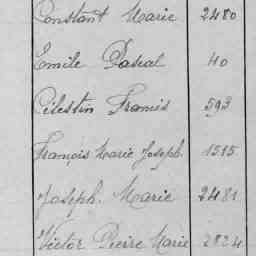 Constant Marie 2480
Emile Pascal 40
Célestin Francis 593
François Marie Joseph. 1515
Joseph. Marie 2481
Victor Pierre Marie 2824